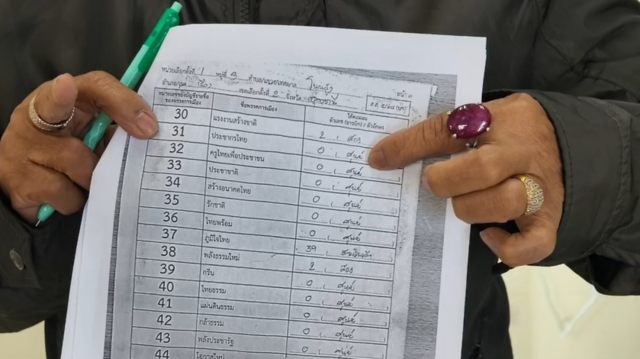 หน่วยเลือกตั้งที่ 1 หมู่ที่ 3 ตำบล/เทศบาล
หน้า ๓
อำเภอ/เขต เมือง เขตเลือกตั้งที่ 2 จังหวัด
หมายเลขบัญชีรายชื่อ ของพรรคการเมือง ชื่อพรรคการเมือง ได้คะแนน ตัวเลข (อารบิก) / ตัวอักษร
30 แรงงานสร้างชาติ 2 , สอง
31 ประชากรไทย 0 , ศูนย์
32 ครูไทยเพื่อประชาชน 0 , ศูนย์
33 ประชาชาติ 0 , ศูนย์
34 สร้างอนาคตไทย 0 , ศูนย์
35 รักชาติ 0 , ศูนย์
36 ไทยพร้อม 0 , ศูนย์
37 ภูมิใจไทย 39 , สามสิบเก้า
38 พลังธรรมใหม่ 2 , สอง
39 กรีน 0 , ศูนย์
40 ไทยธรรม 0 , ศูนย์
41 แผ่นดินธรรม 0 , ศูนย์
42 กล้าธรรม 0 , ศูนย์
43 พลังประชารัฐ 0 , ศูนย์
44 โอกาสใหม่